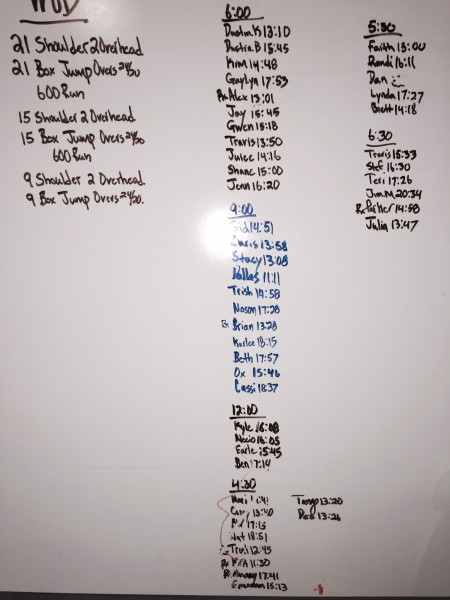 WOD
21 Shoulder 2 Overhead
21 Box Jump Overs 24/20
600 Run
15 Shoulder 2 Overhead
15 Box Jump Overs 24/20
600 Run
9 Shoulder 2 Overhead
9 Box Jump Overs 24/20.
6:00
Dustin.K 13:10
Dustin.B 15:45
Kim 14:48
Gaylyn 17:53
Rx Alex 13:01
Jay 15:45
Gwen 15:18
Travis 13:50
Juice 14:16
Shane 15:00
Jenn 16:20
9:00
Sid 14:51
Chris 13:58
Stacy 13:08
Dallas 11:11
Trish 14:58
Nason 17:28
Rx Brian 13:28
Karlee 18:15
Beth 17:57
Ox 15:46
Cassi 18:37
12:00
Kyle 16:08
16:05
Earle 15:45
Ben 17:14
4:30
13:40
17:13
Nat 18:51
12:45
Rx 11:30
Rx 17:41
15:13
Tango 13:20
13:26
5:30
Faith 13:00
Randi 16:11
Dan
Lynda 17:27
Brett 14:18
6:30
Travis 15:33
Stef 16:30
Teri 17:26
Jim.M 20:34
Rx Parker 14:58
Julia 13:47